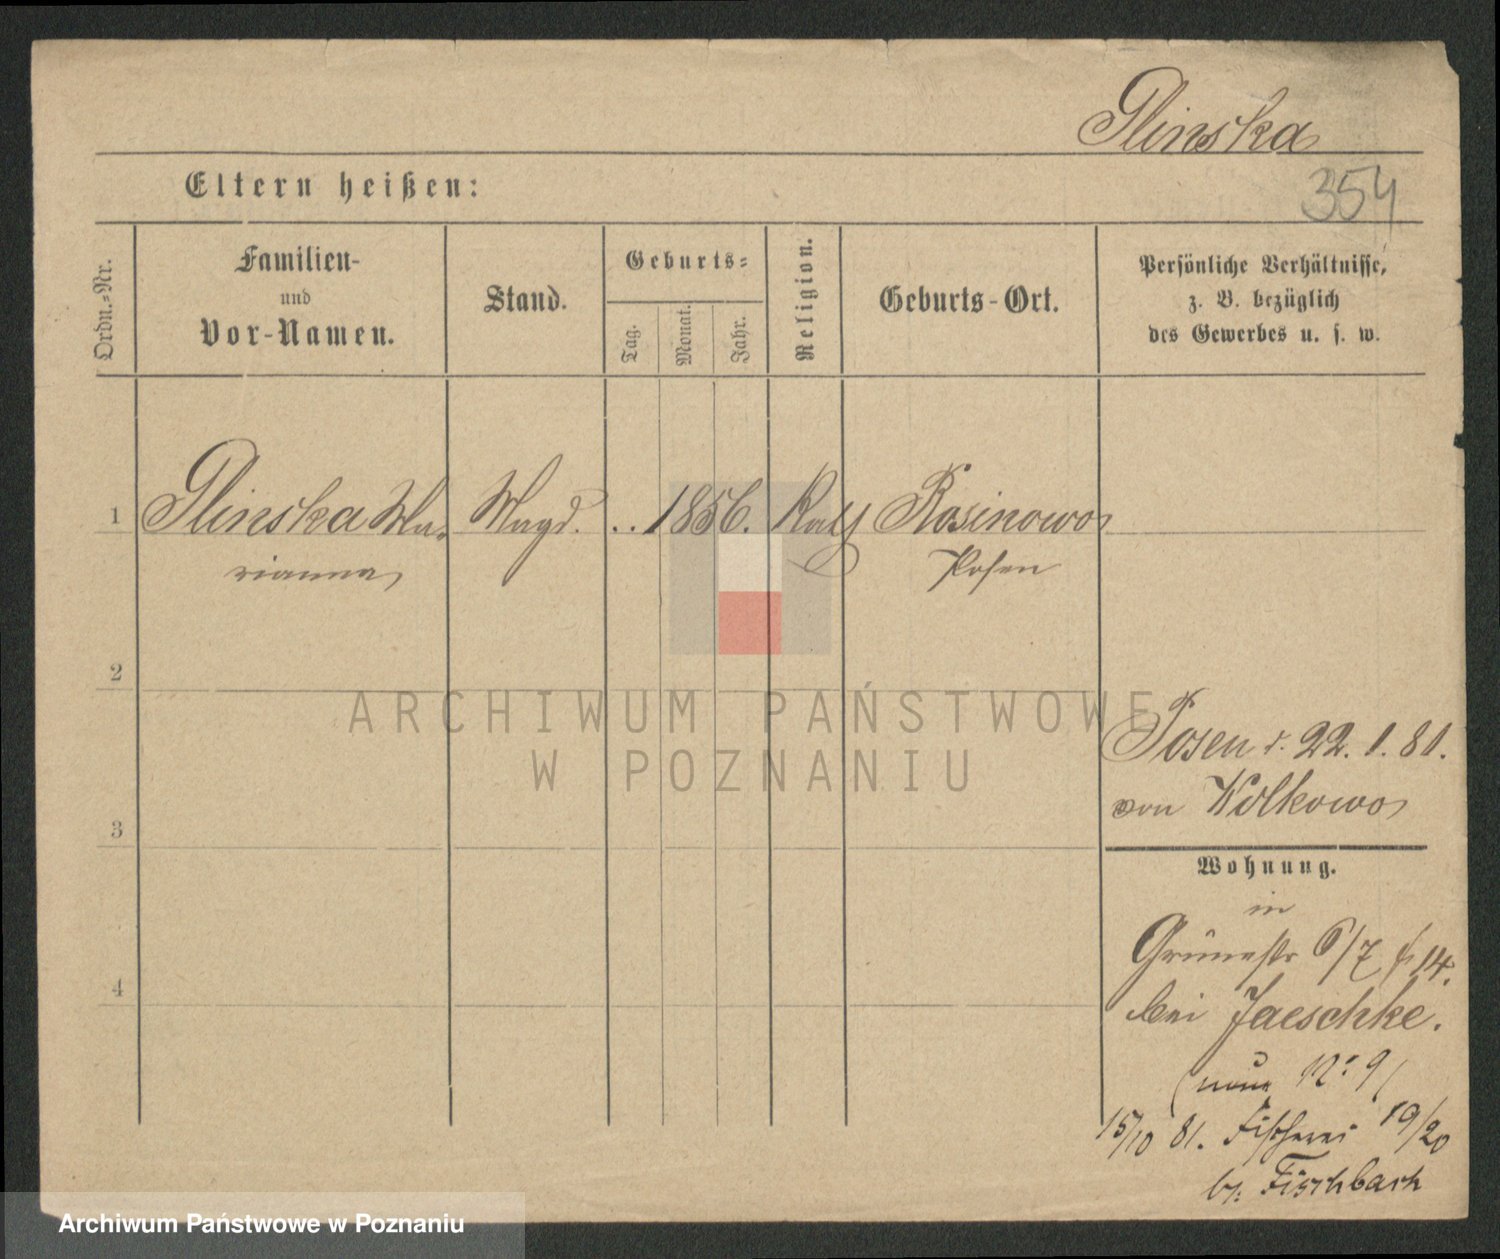 Plinska
Eltern heißen:
354
Ordn.-Nr.
Familien-
und
Vor-Namen.
Stand.
Geburts-
Tag.
Monat.
Jahr.
Religion.
Geburts-Ort.
Persönliche Verhältnisse,
z. B. bezüglich
des Gewerbes u. s. w.
1 Plinska Ma- Magd. .. 1856. Kath Rosinowo
rianna Posen
2
ARCHIWUM PAŃSTWOWE
W POZNANIU
Posen d. 22. 1. 81.
von Wilkowo
3
Wohnung.
in
Grünestr 6/7 14.
bei Jaeschke.
4
(neue No 9)
15/10 81. Fischerei 19/20
b. Fischbach
Archiwum Państwowe w Poznaniu